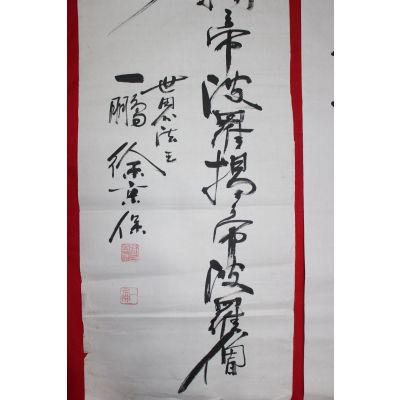 帝波羅揭帝波羅僧
世界法王
一鵬 徐京保